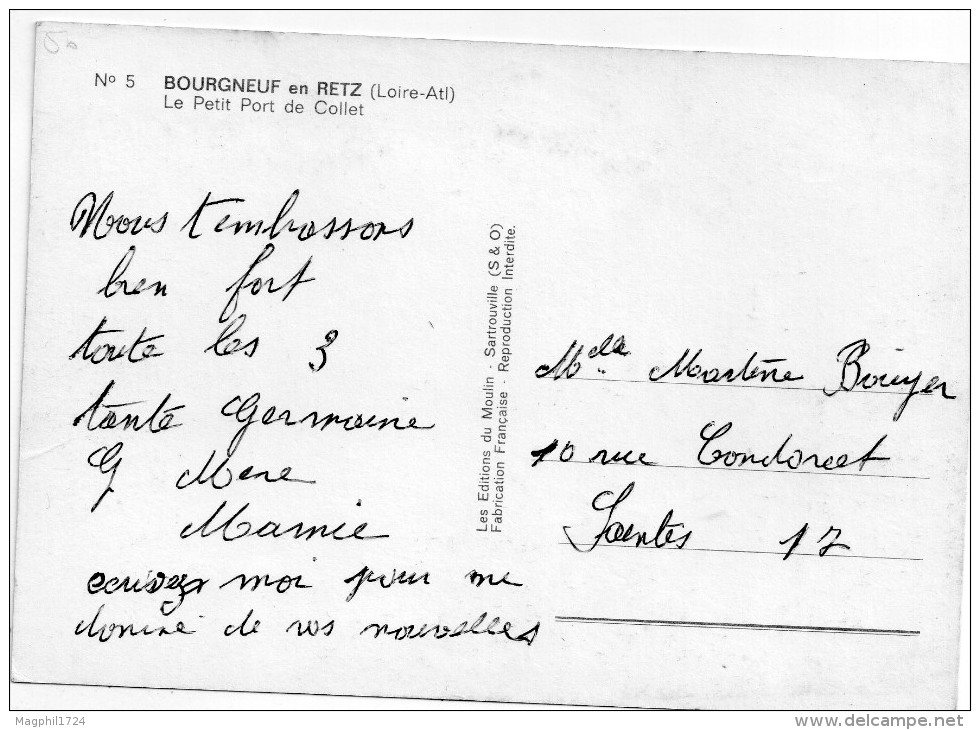 50
Nº 5 BOURGNEUF en RETZ (Loire-Atl)
Le Petit Port de Collet
Nous t'embrassons
bien fort
toute les 3
tante Germaine
G Mere
Mamie
ecrivez moi pour me
donné de vos nouvelles
Les Editions du Moulin - Sartrouville (S & O)
Fabrication Française - Reproduction Interdite.
Melle Martine Bouyer
10 rue Condorcet
Saentes 17
Magphil1724
www.delcampe.net